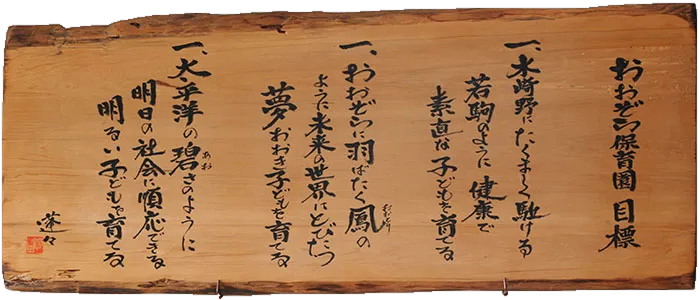 おおぞら保育園 目標
一、木崎野にたくましく駈ける
若駒のように 健康で
素直な子どもを育てる
一、おおぞらに羽ばたく鳳の
おおどり
ように未来の世界にとびたつ
夢おおき子どもを育てる
一、太平洋の碧さのように
あお
明日の社会に順応できる
明るい子どもを育てる
蓮々